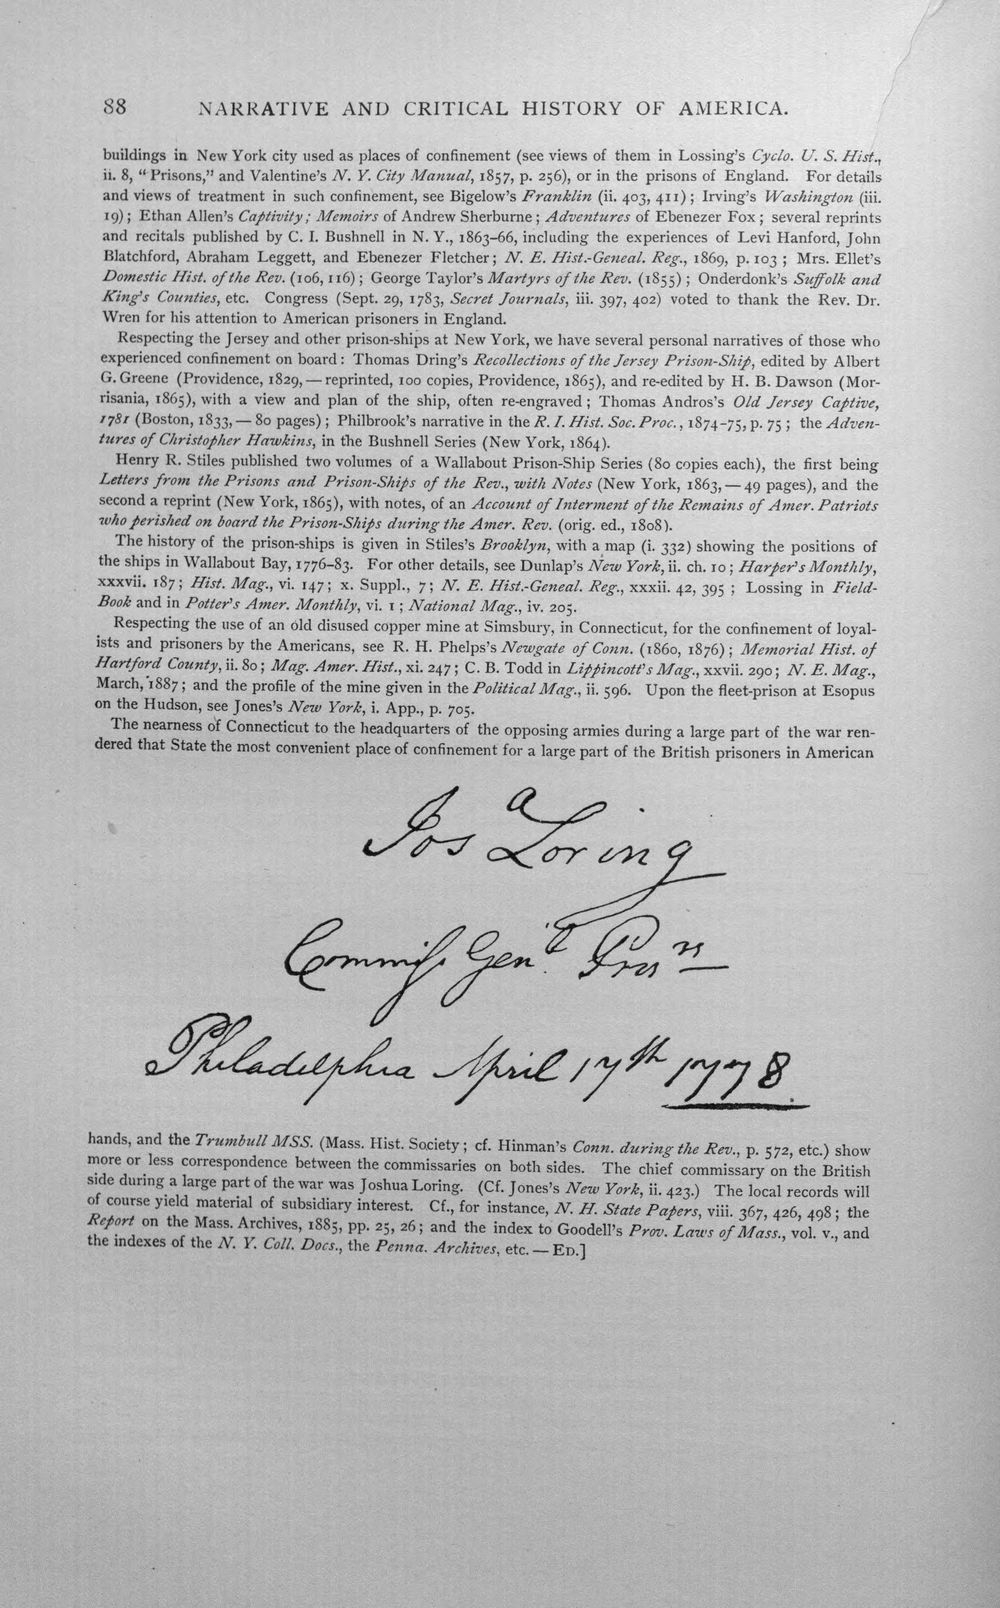 88 NARRATIVE AND CRITICAL HISTORY OF AMERICA.
buildings in New York city used as places of confinement (see views of them in Lossing's Cyclo. U. S. Hist.,
ii. 8, “Prisons,” and Valentine's N. Y. City Manual, 1857, p. 256), or in the prisons of England. For details
and views of treatment in such confinement, see Bigelow's Franklin (ii. 403, 411); Irving's Washington (iii.
19); Ethan Allen's Captivity; Memoirs of Andrew Sherburne; Adventures of Ebenezer Fox; several reprints
and recitals published by C. I. Bushnell in N. Y., 1863-66, including the experiences of Levi Hanford, John
Blatchford, Abraham Leggett, and Ebenezer Fletcher; N. E. Hist.-Geneal. Reg., 1869, p. 103; Mrs. Ellet's
Domestic Hist. of the Rev. (106, 116); George Taylor's Martyrs of the Rev. (1855); Onderdonk's Suffolk and
King's Counties, etc. Congress (Sept. 29, 1783, Secret Journals, iii. 397, 402) voted to thank the Rev. Dr.
Wren for his attention to American prisoners in England.
Respecting the Jersey and other prison-ships at New York, we have several personal narratives of those who
experienced confinement on board: Thomas Dring's Recollections of the Jersey Prison-Ship, edited by Albert
G. Greene (Providence, 1829, — reprinted, 100 copies, Providence, 1865), and re-edited by H. B. Dawson (Mor-
risania, 1865), with a view and plan of the ship, often re-engraved; Thomas Andros's Old Jersey Captive,
1781 (Boston, 1833, — 80 pages); Philbrook's narrative in the R. I. Hist. Soc. Proc., 1874-75, p. 75; the Adven-
tures of Christopher Hawkins, in the Bushnell Series (New York, 1864).
Henry R. Stiles published two volumes of a Wallabout Prison-Ship Series (80 copies each), the first being
Letters from the Prisons and Prison-Ships of the Rev., with Notes (New York, 1863, — 49 pages), and the
second a reprint (New York, 1865), with notes, of an Account of Interment of the Remains of Amer. Patriots
who perished on board the Prison-Ships during the Amer. Rev. (orig. ed., 1808).
The history of the prison-ships is given in Stiles's Brooklyn, with a map (i. 332) showing the positions of
the ships in Wallabout Bay, 1776-83. For other details, see Dunlap's New York, ii. ch. 10; Harper's Monthly,
xxxvii. 187; Hist. Mag., vi. 147; x. Suppl., 7; N. E. Hist.-Geneal. Reg., xxxii. 42, 395; Lossing in Field-
Book and in Potter's Amer. Monthly, vi. 1; National Mag., iv. 205.
Respecting the use of an old disused copper mine at Simsbury, in Connecticut, for the confinement of loyal-
ists and prisoners by the Americans, see R. H. Phelps's Newgate of Conn. (1860, 1876); Memorial Hist. of
Hartford County, ii. 80; Mag. Amer. Hist., xi. 247; C. B. Todd in Lippincott's Mag., xxvii. 290; N. E. Mag.,
March, 1887; and the profile of the mine given in the Political Mag., ii. 596. Upon the fleet-prison at Esopus
on the Hudson, see Jones's New York, i. App., p. 705.
The nearness of Connecticut to the headquarters of the opposing armies during a large part of the war ren-
dered that State the most convenient place of confinement for a large part of the British prisoners in American
Josa Loring
Commiss. Genl. Prisrs
Philadelphia April 17th 1778.
hands, and the Trumbull MSS. (Mass. Hist. Society; cf. Hinman's Conn. during the Rev., p. 572, etc.) show
more or less correspondence between the commissaries on both sides. The chief commissary on the British
side during a large part of the war was Joshua Loring. (Cf. Jones's New York, ii. 423.) The local records will
of course yield material of subsidiary interest. Cf., for instance, N. H. State Papers, viii. 367, 426, 498; the
Report on the Mass. Archives, 1885, pp. 25, 26; and the index to Goodell's Prov. Laws of Mass., vol. v., and
the indexes of the N. Y. Coll. Docs., the Penna. Archives, etc. — ED.]